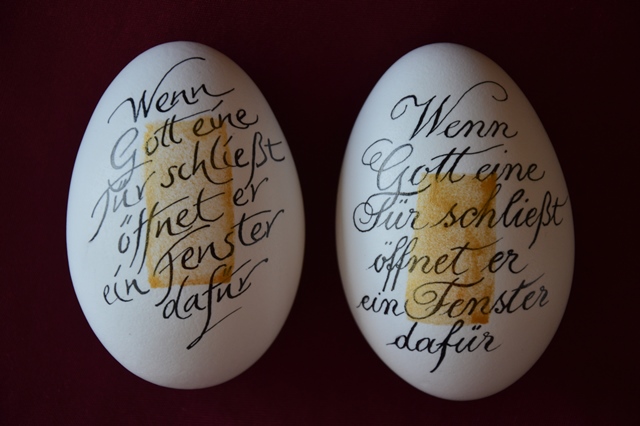 Wenn
Gott eine
Tür schließt
öffnet er
ein Fenster
dafür
Wenn
Gott eine
Tür schließt
öffnet er
ein Fenster
dafür